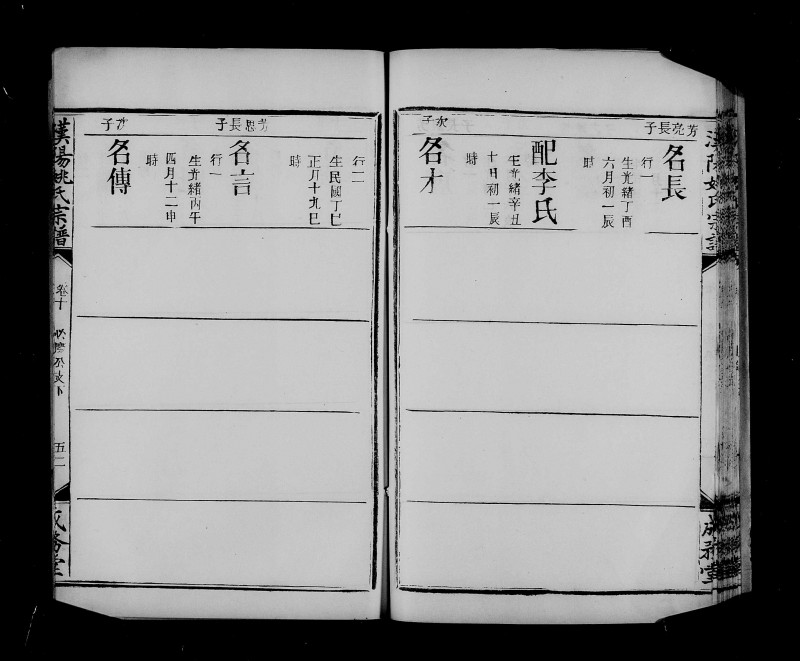 芳亮長子
名長
行一
生光緒丁酉
六月初一辰
時
配李氏
生光緒辛丑
十日初一辰
時
次子
名才
行二
生民國丁巳
正月十九巳
時
芳恩長子
名言
行一
生光緒丙午
四月十二申
時
次子
名傳
漢陽姚氏宗譜
卷十
五二
成務堂